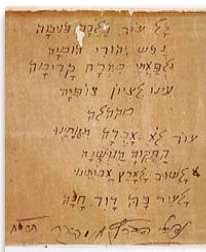 כל עוד בלבב פנימה
נפש יהודי הומיה
ולפאתי מזרח קדימה
עינו לציון צופיה
מקהלה
עוד לא אבדה תקותנו
התקוה הנושנה
לשוב לארץ אבותינו
לעיר בה דוד חנה
נפתלי הערץ אימבר